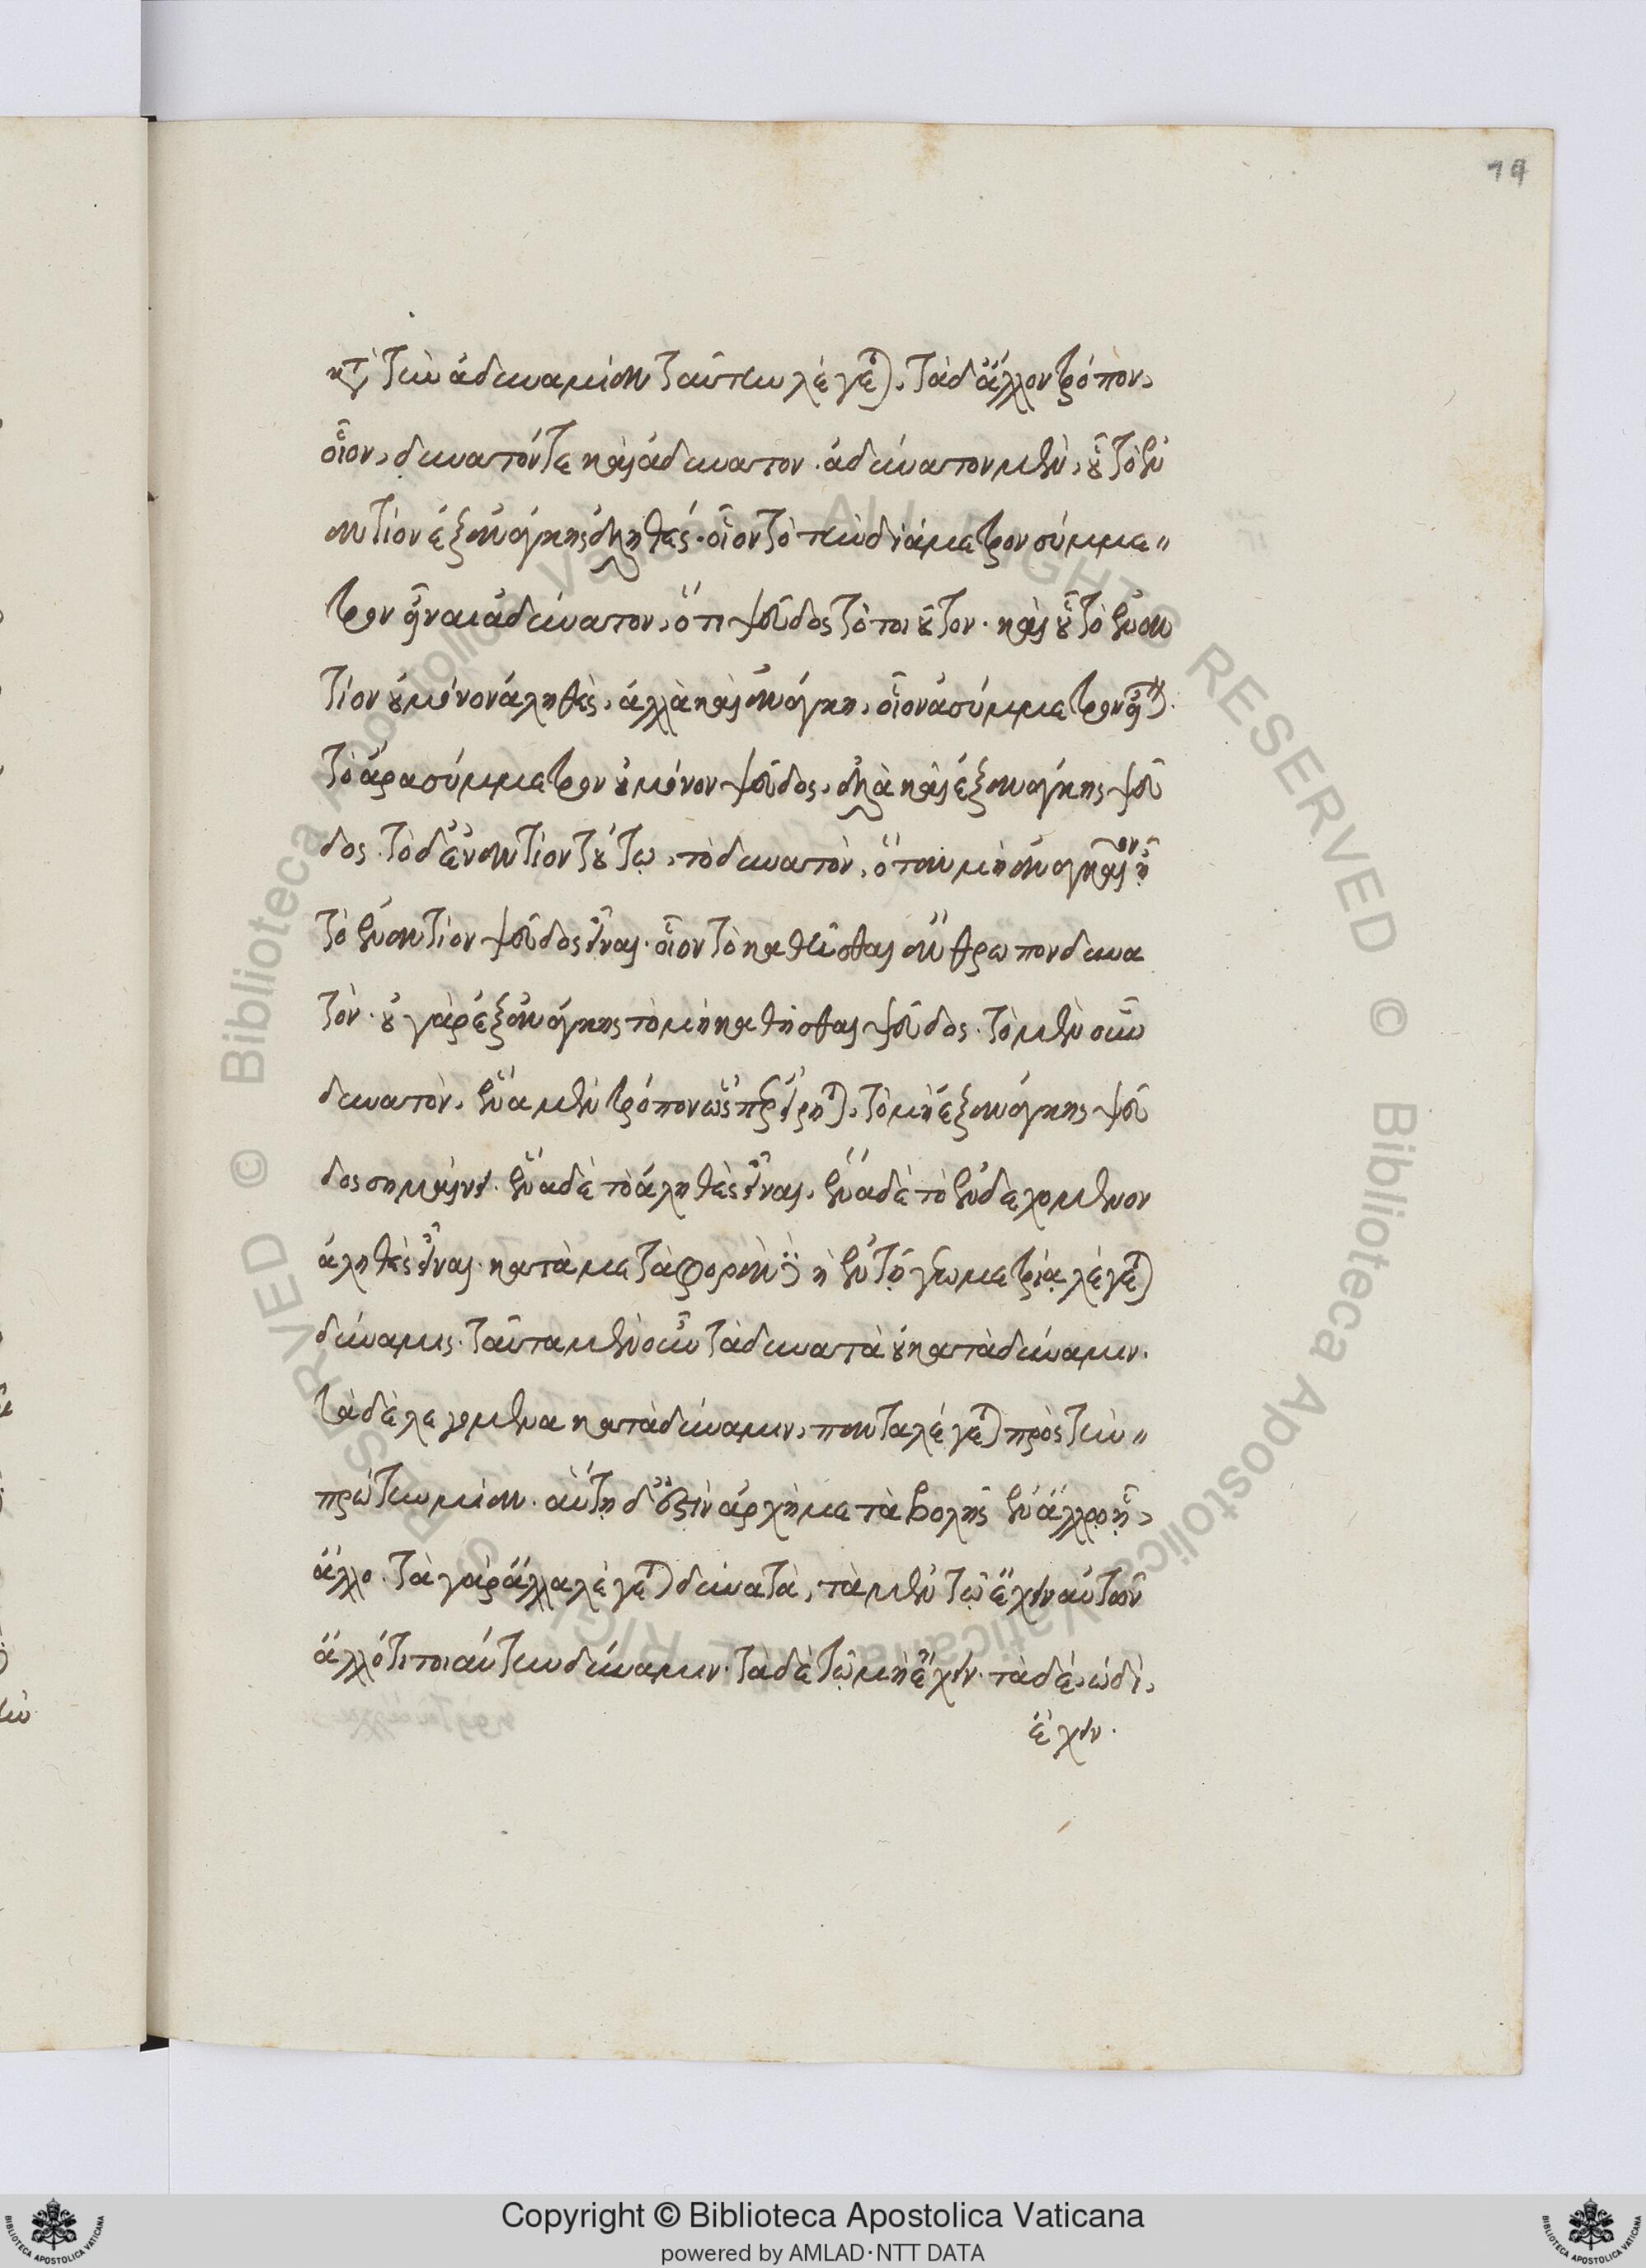 19
κατὰ τὴν ἀδυναμίαν ταύτην λέγεται, τὰ δ' ἄλλον τρόπον,
οἷον, δυνατόν τε καὶ ἀδύνατον. ἀδύνατον μὲν, οὗ τὸ ἐν
αντίον ἐξ ἀνάγκης ἀληθές. οἷον τὸ τὴν διάμετρον σύμμε
τρον εἶναι ἀδύνατον, ὅτι ψεῦδος τὸ τοιοῦτον. καὶ οὗ τὸ ἐναν
τίον οὐ μόνον ἀληθὲς, ἀλλὰ καὶ ἀνάγκη, οἷον ἀσύμμετρον εἶναι.
τὸ ἄρα σύμμετρον οὐ μόνον ψεῦδος, ἀλλὰ καὶ ἐξ ἀνάγκης ψεῦ
δος. τὸ δ' ἐναντίον τούτῳ, τὸ δυνατὸν, ὅταν μὴ ἀναγκαῖον ᾖ
τὸ ἐναντίον ψεῦδος εἶναι. οἷον τὸ καθῆσθαι ἄνθρωπον δυνα
τόν. οὐ γὰρ ἐξ ἀνάγκης τὸ μὴ καθῆσθαι ψεῦδος. τὸ μὲν οὖν
δυνατὸν, ἕνα μὲν τρόπον ὥσπερ εἴρηται, τὸ μὴ ἐξ ἀνάγκης ψεῦ
δος σημαίνει. ἕνα δὲ τὸ ἀληθὲς εἶναι, ἕνα δὲ τὸ ἐνδεχόμενον
ἀληθὲς εἶναι. κατὰ μεταφορὰν δὲ ἡ ἐν τῇ γεωμετρίᾳ λέγεται
δύναμις. ταῦτα μὲν οὖν τὰ δυνατὰ οὐ κατὰ δύναμιν.
τὰ δὲ λεγόμενα κατὰ δύναμιν, πάντα λέγεται πρὸς τὴν
πρώτην μίαν. αὕτη δ' ἐστὶν ἀρχὴ μεταβολῆς ἐν ἄλλῳ ᾗ,
ἄλλο. τὰ γὰρ ἄλλα λέγεται δυνατὰ, τὰ μὲν τῷ ἔχειν αὐτῶν
ἄλλό τι τοιαύτην δύναμιν. τὰ δὲ τῷ μὴ ἔχειν. τὰ δέ, ὡδὶ,
ἔχειν.
Copyright © Biblioteca Apostolica Vaticana
powered by AMLAD·NTT DATA